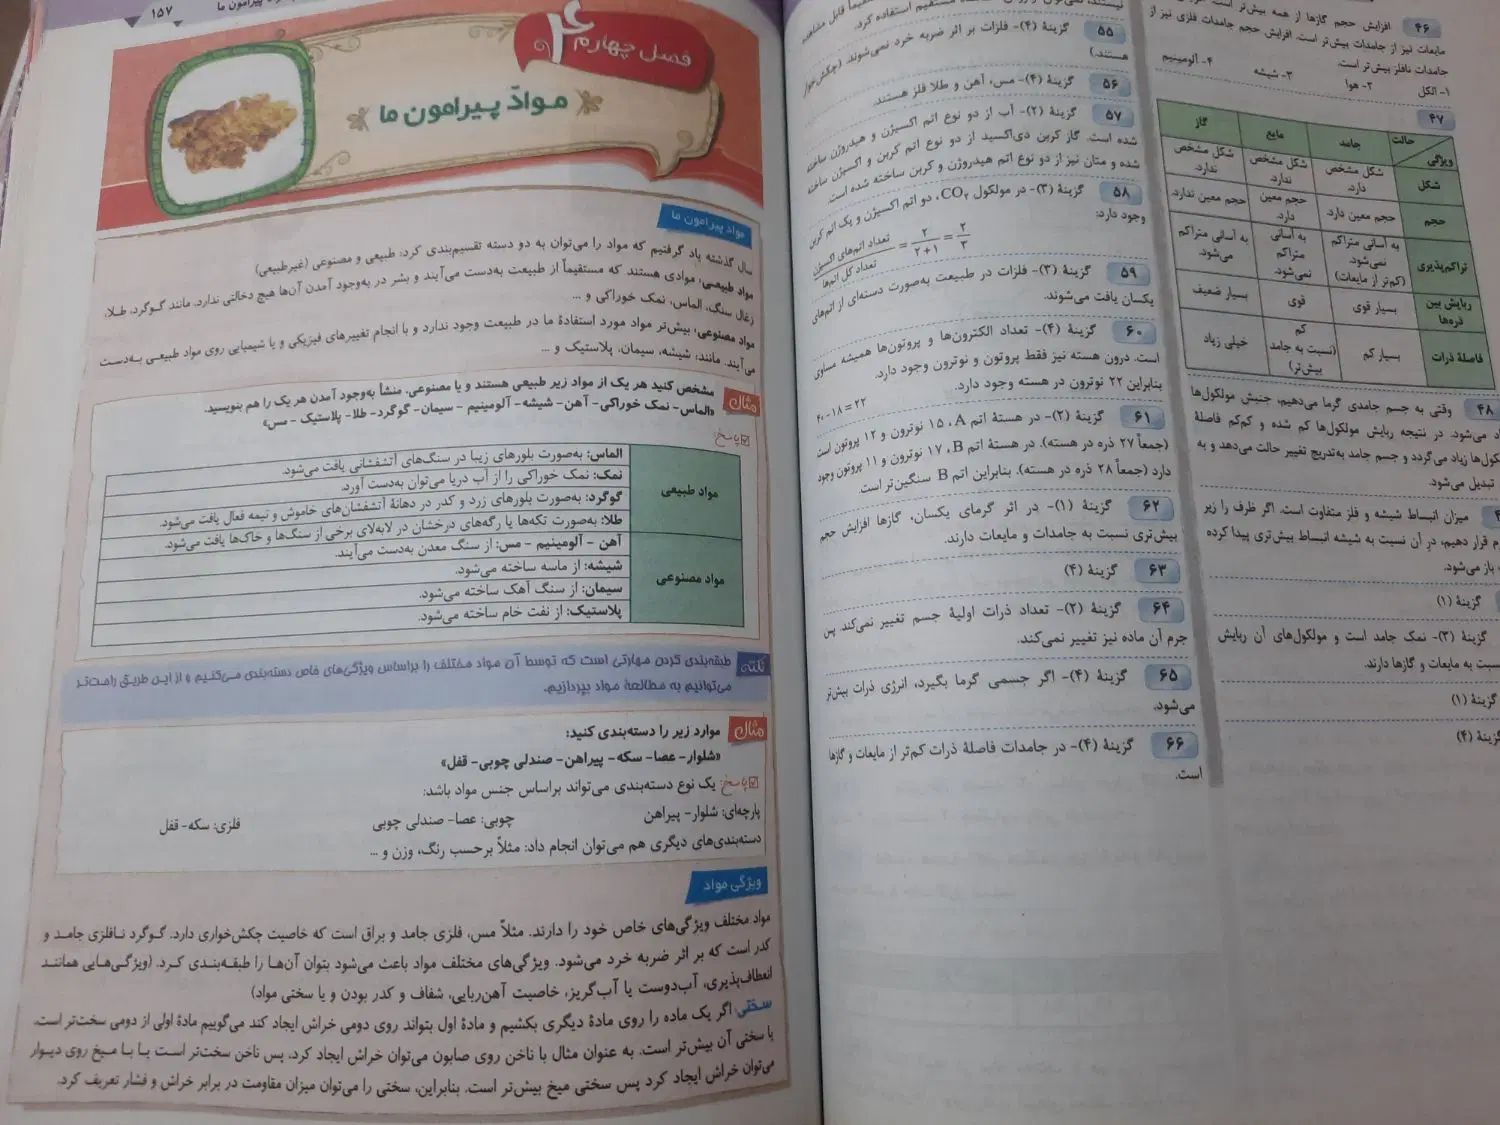 ۱۵۷
پیرامون ما
فصل چهارم
۴
موادّ پیرامون ما
مواد پیرامون ما
سال گذشته یاد گرفتیم که مواد را می‌توان به دو دسته تقسیم‌بندی کرد: طبیعی و مصنوعی (غیرطبیعی)
مواد طبیعی، موادی هستند که مستقیماً از طبیعت به‌دست می‌آیند و بشر در به‌وجود آمدن آن‌ها هیچ دخالتی ندارد. مانند گوگرد، طلا،
زغال سنگ، الماس، نمک خوراکی و ...
مواد مصنوعی، بیش‌تر مواد مورد استفادهٔ ما در طبیعت وجود ندارد و با انجام تغییرهای فیزیکی و یا شیمیایی روی مواد طبیعی به‌دست
می‌آیند. مانند: شیشه، سیمان، پلاستیک و ...
مثال مشخص کنید هر یک از مواد زیر طبیعی هستند و یا مصنوعی. منشأ به‌وجود آمدن هر یک را هم بنویسید.
«الماس- نمک خوراکی- آهن- شیشه- آلومینیم - سیمان- گوگرد- طلا- پلاستیک - مس»
پاسخ:
مواد طبیعی
الماس: به‌صورت بلورهای زیبا در سنگ‌های آتشفشانی یافت می‌شود.
نمک: نمک خوراکی را از آب دریا می‌توان به‌دست آورد.
گوگرد: به‌صورت بلورهای زرد و کدر در دهانهٔ آتشفشان‌های خاموش و نیمه فعال یافت می‌شود.
طلا: به‌صورت تکه‌ها یا رگه‌های درخشان در لابه‌لای برخی از سنگ‌ها و خاک‌ها یافت می‌شود.
مواد مصنوعی
آهن - آلومینیم - مس: از سنگ معدن به‌دست می‌آیند.
شیشه: از ماسه ساخته می‌شود.
سیمان: از سنگ آهک ساخته می‌شود.
پلاستیک: از نفت خام ساخته می‌شود.
نکته طبقه‌بندی کردن مهارتی است که توسط آن مواد مختلف را براساس ویژگی‌های خاص دسته‌بندی می‌کنیم و از این طریق راحت‌تر
می‌توانیم به مطالعهٔ مواد بپردازیم.
مثال موارد زیر را دسته‌بندی کنید:
«شلوار- عصا- سکه- پیراهن- صندلی چوبی- قفل»
پاسخ: یک نوع دسته‌بندی می‌تواند براساس جنس مواد باشد:
پارچه‌ای: شلوار- پیراهن چوبی: عصا- صندلی چوبی فلزی: سکه- قفل
دسته‌بندی‌های دیگری هم می‌توان انجام داد: مثلاً برحسب رنگ، وزن و ...
ویژگی مواد
مواد مختلف ویژگی‌های خاص خود را دارند. مثلاً مس، فلزی جامد و براق است که خاصیت چکش‌خواری دارد. گوگرد نافلزی جامد و
کدر است که بر اثر ضربه خرد می‌شود. ویژگی‌های مختلف مواد باعث می‌شود بتوان آن‌ها را طبقه‌بندی کرد. (ویژگی‌هایی همانند
انعطاف‌پذیری، آب‌دوست یا آب‌گریز، خاصیت آهن‌ربایی، شفاف و کدر بودن و یا سختی مواد)
سختی: اگر یک ماده را روی مادهٔ دیگری بکشیم و مادهٔ اول بتواند روی دومی خراش ایجاد کند می‌گوییم مادهٔ اولی از دومی سخت‌تر است.
یا سختی آن بیش‌تر است. به عنوان مثال با ناخن روی صابون می‌توان خراش ایجاد کرد، پس ناخن سخت‌تر است یا با میخ روی دیوار
می‌توان خراش ایجاد کرد پس سختی میخ بیش‌تر است. بنابراین، سختی را می‌توان میزان مقاومت در برابر خراش و فشار تعریف کرد.
۴۶ افزایش حجم گازها از همه بیش‌تر است.
مایعات نیز از جامدات بیش‌تر است. افزایش حجم جامدات فلزی نیز از
جامدات نافلز بیش‌تر است.
۱- الکل ۲- هوا ۳- شیشه ۴- آلومینیم
۴۷
حالت ویژگی جامد مایع گاز
شکل شکل مشخص دارد. شکل مشخص ندارد. شکل مشخص ندارد.
حجم حجم معین دارد. حجم معین دارد. حجم معین ندارد.
تراکم‌پذیری به آسانی متراکم نمی‌شود. (کم‌تر از مایعات) به آسانی متراکم نمی‌شود. به آسانی متراکم می‌شود.
ربایش بین ذره‌ها بسیار قوی قوی بسیار ضعیف
فاصلهٔ ذرات بسیار کم کم (نسبت به جامد بیش‌تر) خیلی زیاد
۴۸ وقتی به جسم جامدی گرما می‌دهیم، جنبش مولکول‌ها
می‌شود. در نتیجه ربایش مولکول‌ها کم شده و کم‌کم فاصلهٔ
زیاد می‌گردد و جسم جامد به‌تدریج تغییر حالت می‌دهد و به
تبدیل می‌شود.
میزان انبساط شیشه و فلز متفاوت است. اگر ظرف را زیر
قرار دهیم، در آن نسبت به شیشه انبساط بیش‌تری پیدا کرده
باز می‌شود.
گزینهٔ (۱)
گزینهٔ (۳)- نمک جامد است و مولکول‌های آن ربایش
به مایعات و گازها دارند.
گزینهٔ (۱)
گزینهٔ (۴)
مستقیم استفاده کرد.
۵۵ گزینهٔ (۴)- فلزات بر اثر ضربه خرد نمی‌شوند. (چکش‌خوار
هستند.)
۵۶ گزینهٔ (۴)- مس، آهن و طلا فلز هستند.
۵۷ گزینهٔ (۲)- آب از دو نوع اتم اکسیژن و هیدروژن ساخته
شده است. گاز کربن دی‌اکسید از دو نوع اتم کربن و اکسیژن ساخته
شده و متان نیز از دو نوع اتم هیدروژن و کربن ساخته شده است.
۵۸ گزینهٔ (۳)- در مولکول CO₂، دو اتم اکسیژن و یک اتم کربن
وجود دارد:
تعداد اتم‌های اکسیژن / تعداد کل اتم‌ها = ۲/(۲+۱) = ۲/۳
۵۹ گزینهٔ (۳)- فلزات در طبیعت به‌صورت دسته‌ای از اتم‌های
یکسان یافت می‌شوند.
۶۰ گزینهٔ (۴)- تعداد الکترون‌ها و پروتون‌ها همیشه مساوی
است. درون هسته نیز فقط پروتون و نوترون وجود دارد.
بنابراین ۲۲ نوترون در هسته وجود دارد.
۴۰-۱۸=۲۲
۶۱ گزینهٔ (۲)- در هستهٔ اتم A، ۱۵ نوترون و ۱۲ پروتون است
(جمعاً ۲۷ ذره در هسته). در هستهٔ اتم B، ۱۷ نوترون و ۱۱ پروتون وجود
دارد (جمعاً ۲۸ ذره در هسته). بنابراین اتم B سنگین‌تر است.
۶۲ گزینهٔ (۱)- در اثر گرمای یکسان، گازها افزایش حجم
بیش‌تری نسبت به جامدات و مایعات دارند.
۶۳ گزینهٔ (۴)
۶۴ گزینهٔ (۲)- تعداد ذرات اولیهٔ جسم تغییر نمی‌کند پس
جرم آن ماده نیز تغییر نمی‌کند.
۶۵ گزینهٔ (۴)- اگر جسمی گرما بگیرد، انرژی ذرات بیش‌تر
می‌شود.
۶۶ گزینهٔ (۴)- در جامدات فاصلهٔ ذرات کم‌تر از مایعات و گازها
است.